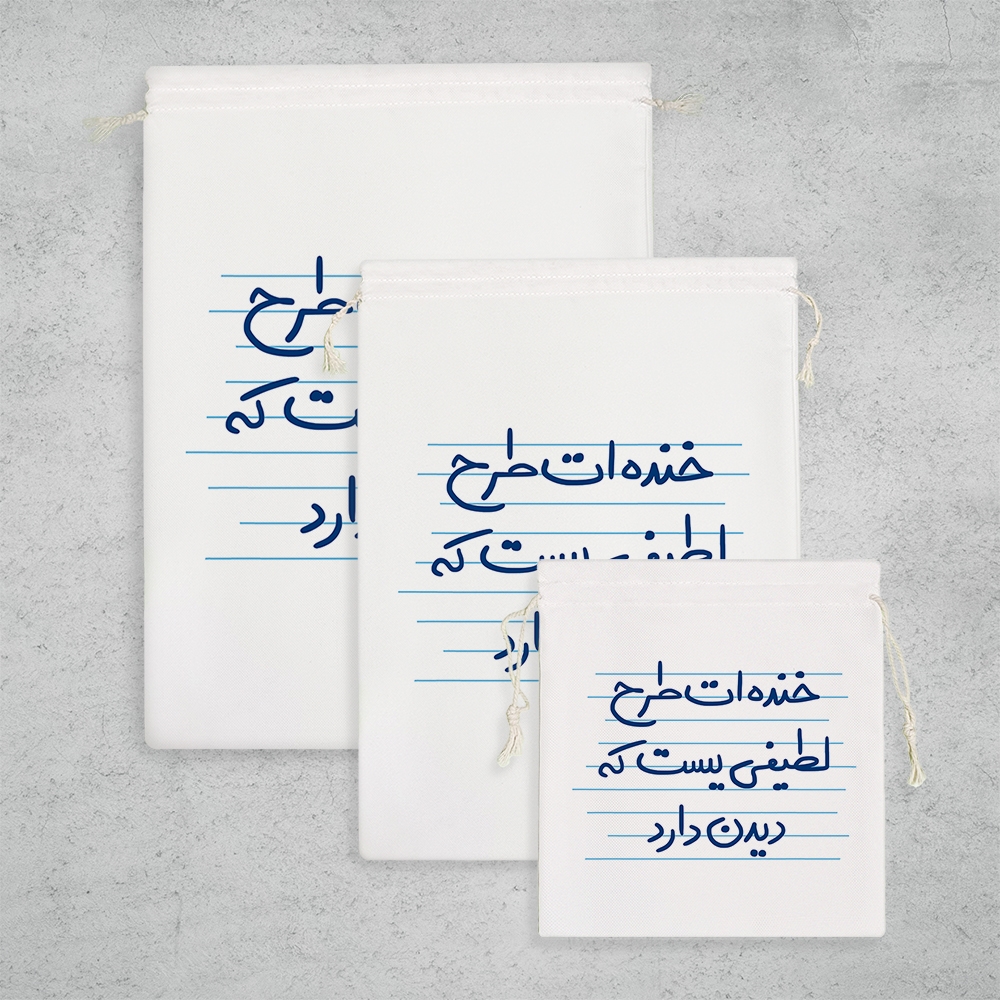 طرح
ست که
ارد
خنده ات طرح
لطیفی یست که
ارد
خنده ات طرح
لطیفی یست که
دیدن دارد